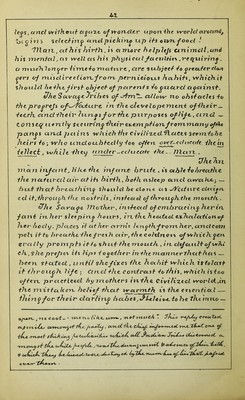 42
legs, and without a gaze of wonder upon the world around,
begins selecting and picking up its own food!
Man, at his birth, is a more helpless animal, and
his mental, as well as his physical faculties, requiring
a much longer time to mature, are subject to greater dan
gers of misdirection from pernicious habits, which it
should be the first object of parents to guard against.
The Savage Tribes of Am.ª allow no obstacles to
the progress of Nature in the developement of their
teeth and their lungs for the purposes of life, and
consequently securing their exemption from many of the
pangs and pains which the civilized Races seem to be
heirs to; who undoubtedly too often over-educate the in
tellect, while they under-educate the Man.
The hu
man infant, like the infant brute, is able to breathe
the natural air at its birth, both asleep and awake;
but that breathing should be done as Nature design
ed it, through the nostrils, instead of through the mouth.
The Savage Mother, instead of embracing her in
fant in her sleeping hours, in the heated exhalation of
her body, places it at her arm's length from her, and com
pels it to breathe the fresh air, the coldness of which gen
erally prompts it to shut the mouth, in default of whi
ch, she presses its lips together in the manner that has
been stated, until she fixes the habit which is to last
it through life; and the contrast to this, which is too
often practised by mothers in the Civilized world, in
the mistaken belief that warmth is the essential
thing for their darling babes, I believe to be the inno
open, no coat - men like um, not much". This reply created
a smile amongst the party, and the chief informed me that one of
the most striking peculiarities which all Indian Tribes discovered a
mongst the white people, was the derangement & absence of their teeth
& which they believed were destroyed by the number of lies that passed
over them.